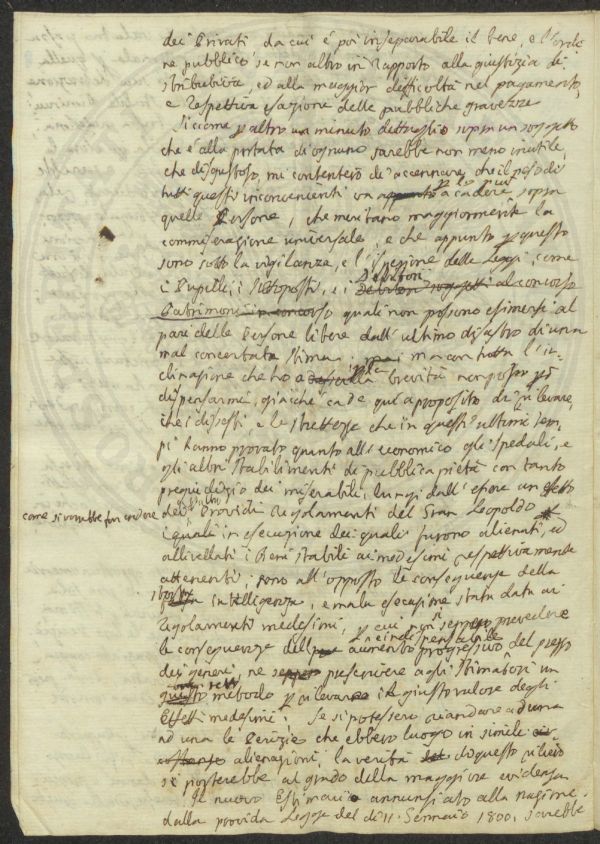 dei Privati da cui é poi inseparabile il bene, e l'ordi
ne pubblico se non altro in rapporto alla giustizia di
stributiva, ed alla maggior difficoltà nel pagamento,
e respettiva esazione delle pubbliche gravezze
Siccome p altro un minuto dettaglio sopra un soggetto
che è alla portata di ognuno sarebbe non meno inutile,
che disgustoso, mi contenterò de accennare, che il peso di
tutti questi inconvenienti va appunto p lo più a cadere sopra
quelle Persone, che meritano maggiormente la
commiserazione universale, e che appunto p questo
sono sotto la vigilanza, e l'ispezione delle Leggi, come
i Pupilli, i Sottoposti, e i Debitori al concorso
Patrimoni in concorso quali non possono esimersi al
pari delle Persone libere dall'ultimo disastro di una
mal concertata stima. ma con tutta l'in-
clinazione che ho alla brevità non posso p
dispensarmi, giacché cade qui a proposito di rilevare,
che i dissesti, e le strettezze che in questi ultimi tem
pi hanno provato quanto all'economico gli spedali, e
gli altri stabilimenti di pubblica pietà con tanto
pregiudizio dei miserabili, lungi dall'essere un effetto
come si vorrebbe far credere
dei Providi Regolamenti del Gran Leopoldo
in esecuzione dei quali furono alienati, ed
allivellati i Beni stabili ai medesimi respettivamente
attenenti, sono all'opposto le conseguenze della
intelligenza, e mala esecuzione stata data ai
regolamenti medesimi, p cui non seppero prevedere
le conseguenze dell' indispensabile aumento progressivo del prezzo
dei generi, ne prescrivere agli Stimatori un
metodo p rilevare il giusto valore degli
Effetti medesimi. Se si potessero riandare ad una
ad una le Perizie che ebbero luogo in simili
alienazioni, la verità di questo rilievo
si porterebbe al grado della maggiore evidenza
Il nuovo Estimario annunziato alla nazione
dalla provida Legge del dì 11. Gennaio 1800. sarebbe